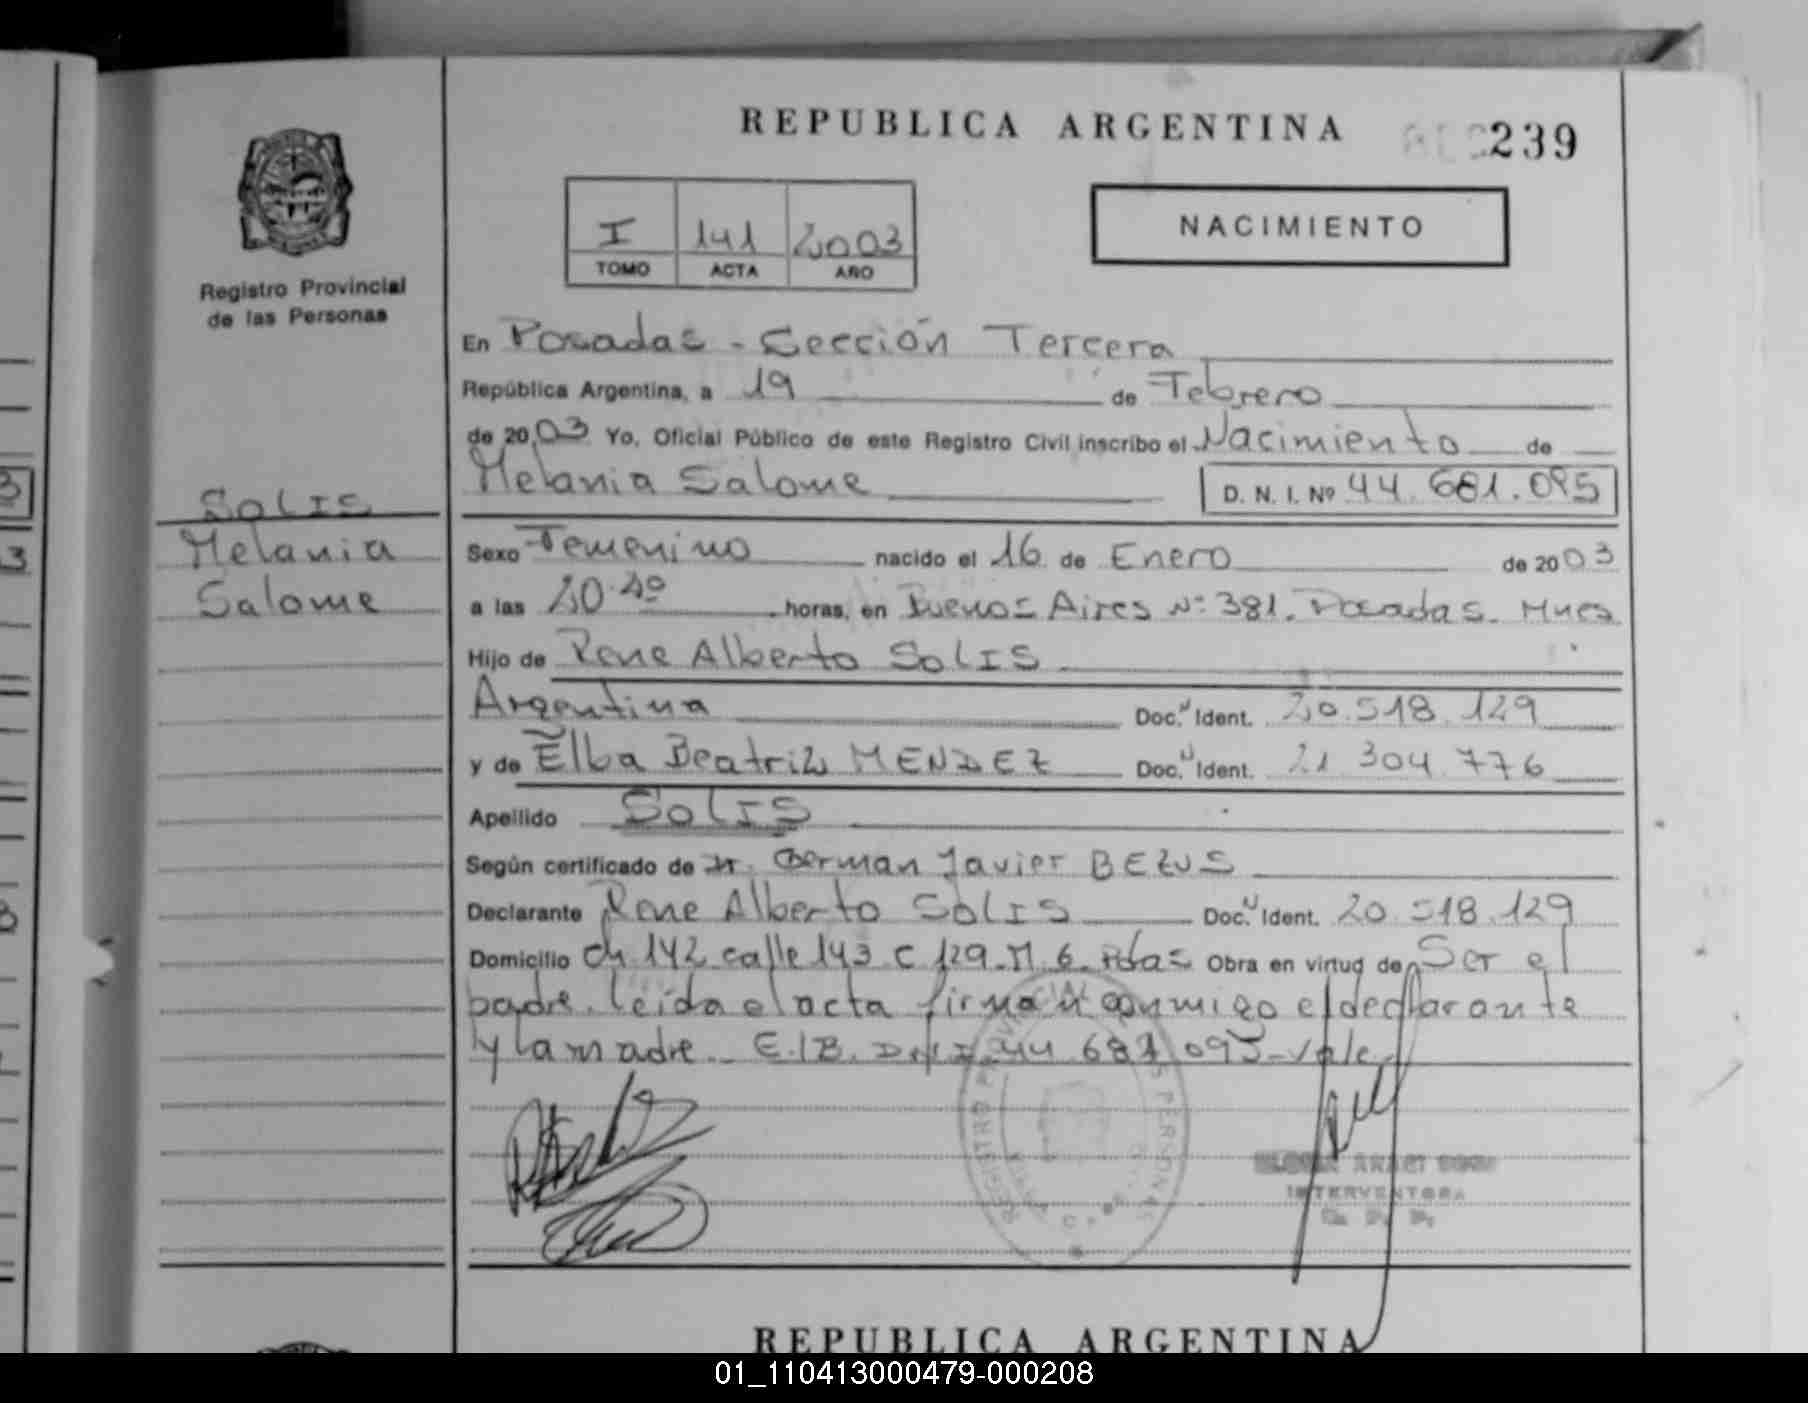 REPUBLICA ARGENTINA
239
I 141 2003
TOMO ACTA AÑO
NACIMIENTO
Registro Provincial
de las Personas
SOLIS
Melania
Salome
En Posadas - Sección Tercera
República Argentina, a 19 de Febrero
de 20 03 Yo, Oficial Público de este Registro Civil inscribo el Nacimiento de
Melania Salome D. N. I. Nº 44.681.095
Sexo Femenino nacido el 16 de Enero de 20 03
a las 20.40 horas, en Buenos Aires Nº 381. Posadas. Mnes
Hijo de Rene Alberto SOLIS
Argentina Doc. Ident. 20.518.129
y de Elba Beatriz MENDEZ Doc. Ident. 21 304.776
Apellido SOLIS
Según certificado de Dr. German Javier BEZUS
Declarante Rene Alberto SOLIS Doc. Ident. 20.518.129
Domicilio Ch 142 calle 143 C 129 M 6 Pdas Obra en virtud de Ser el
padre. leida el acta firma n conmigo el declarante
y la madre. E.l B. D.N.I. 44 681 095 - Vale
REGISTRO PROVINCIAL PERSONAS
INTERVENTORA
REPUBLICA ARGENTINA
01_110413000479-000208